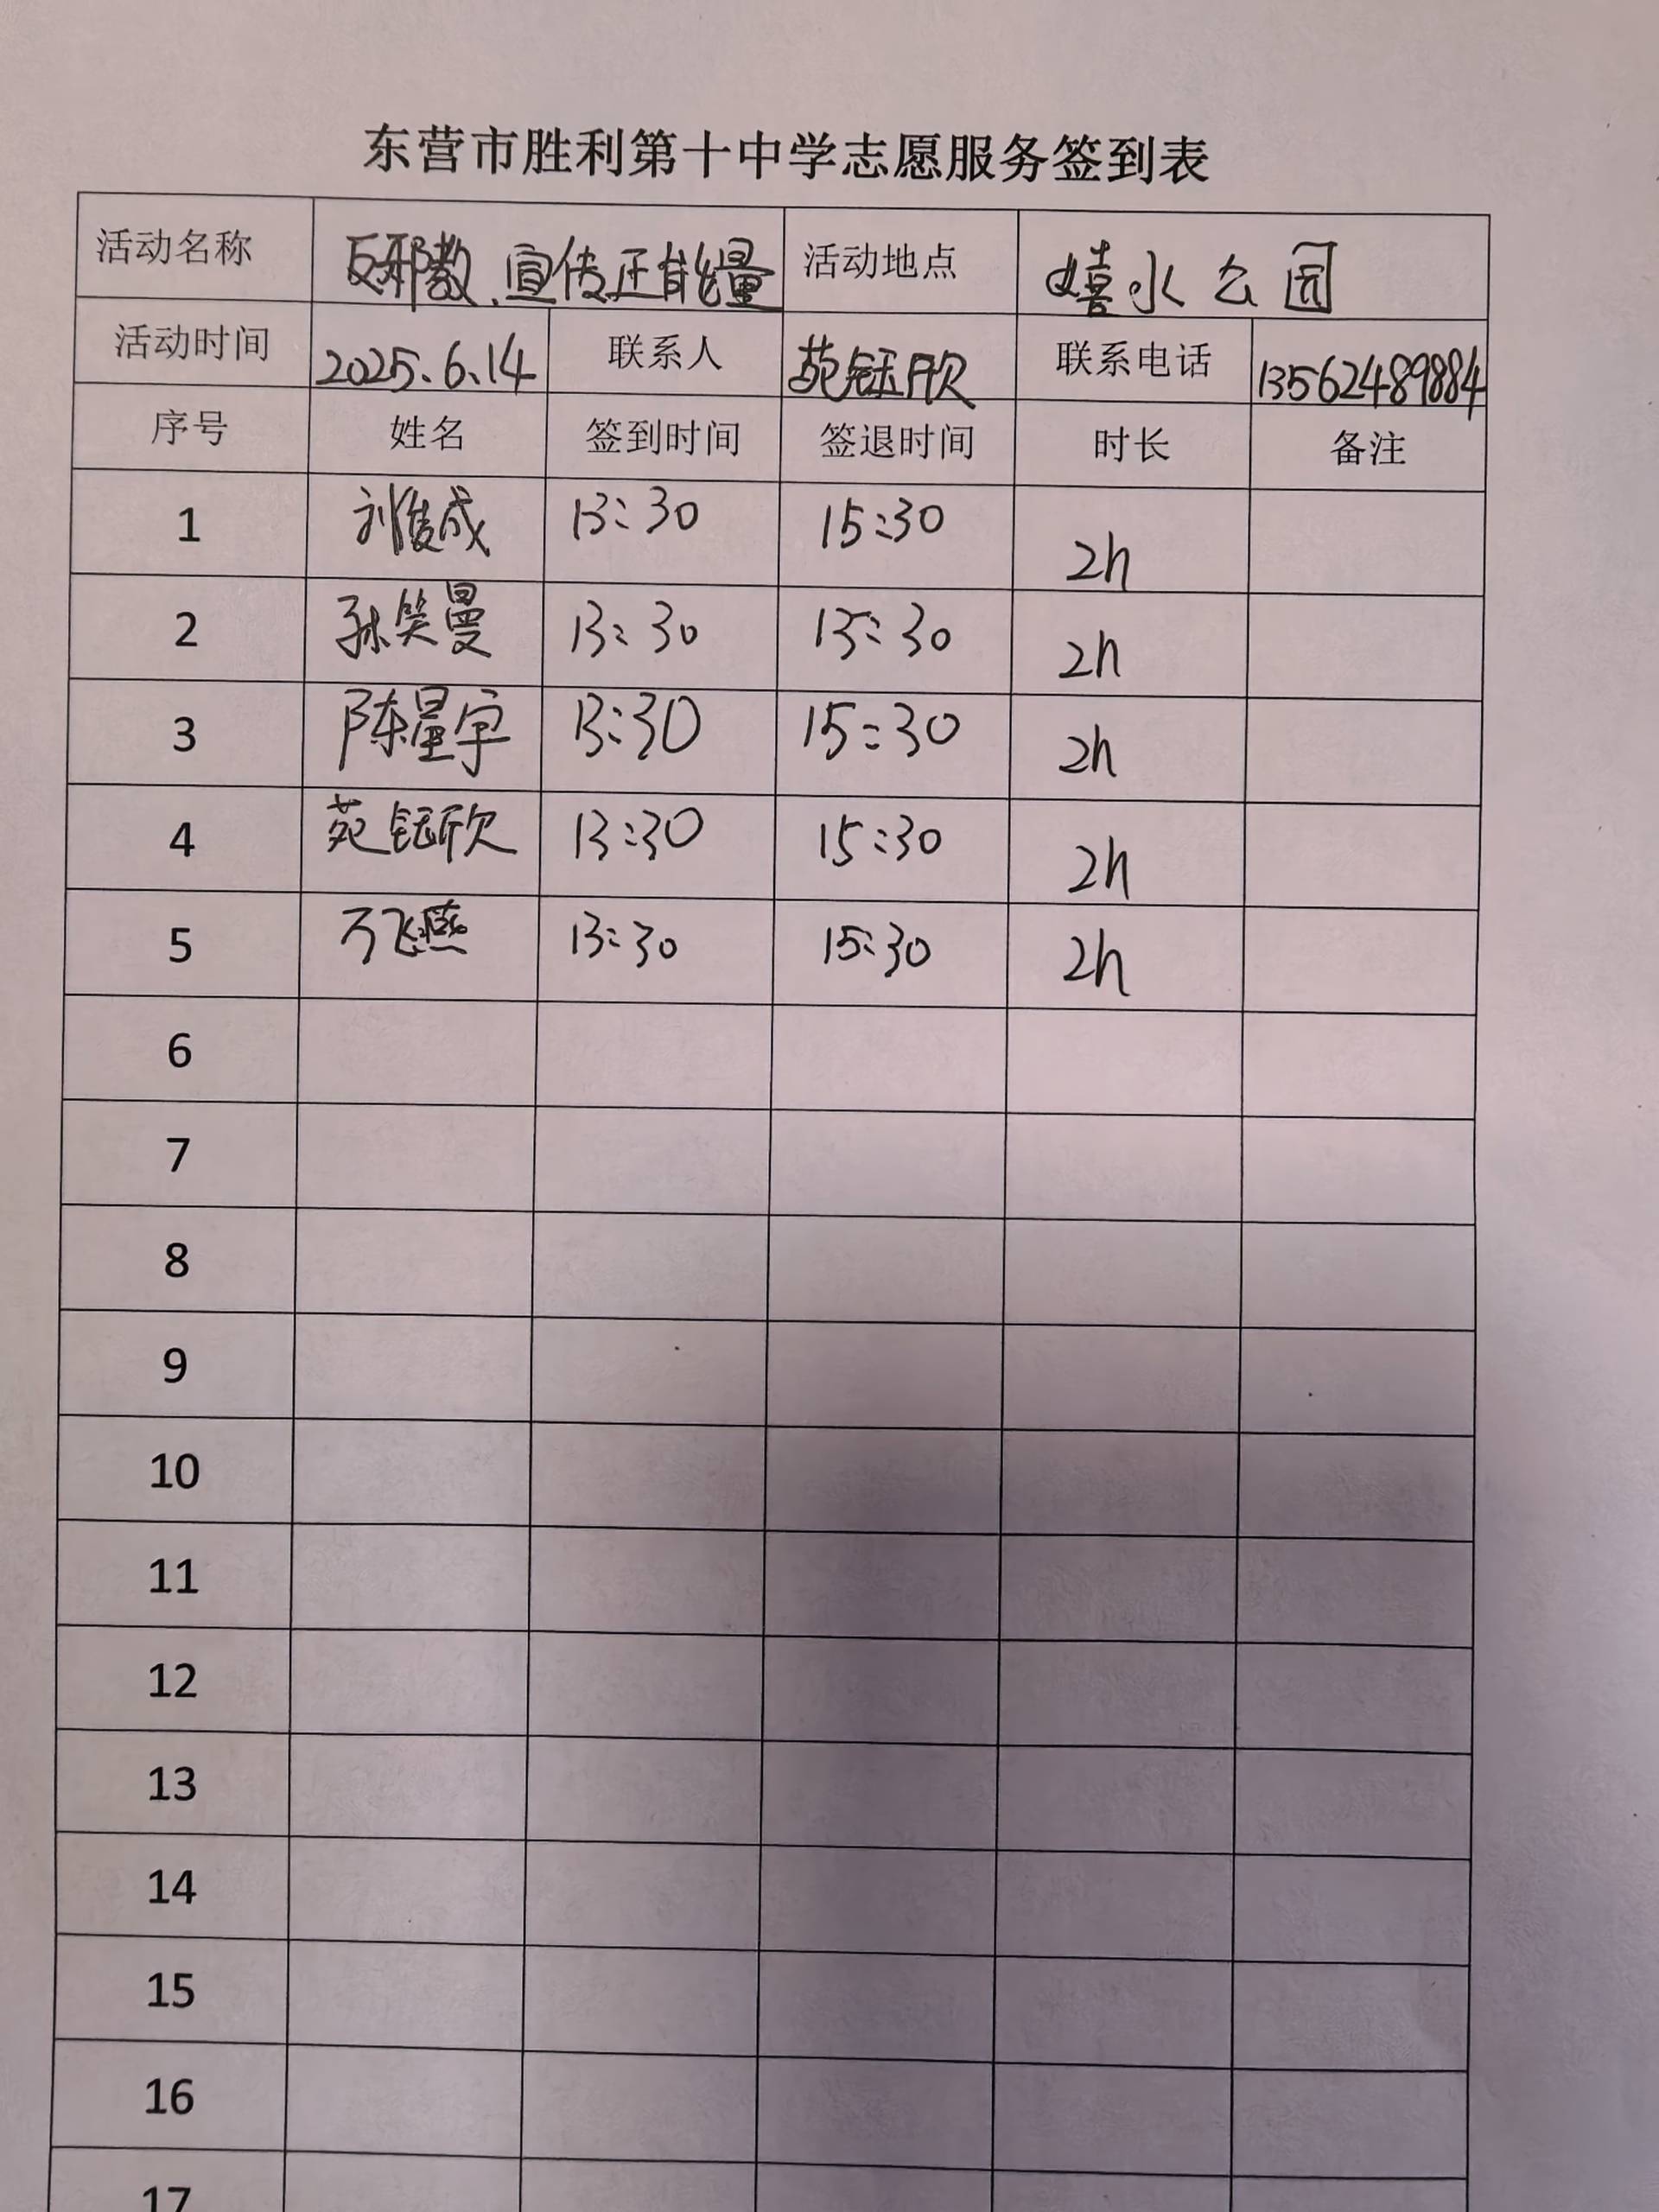 东营市胜利第十中学志愿服务签到表
活动名称 反邪教、宣传正能量 活动地点 嬉水公园
活动时间 2025.6.14 联系人 苑钰欣 联系电话 13562489884
序号 姓名 签到时间 签退时间 时长 备注
1 刘俊成 13:30 15:30 2h
2 孙笑曼 13:30 15:30 2h
3 陈星宇 13:30 15:30 2h
4 苑钰欣 13:30 15:30 2h
5 万飞燕 13:30 15:30 2h
6
7
8
9
10
11
12
13
14
15
16
17